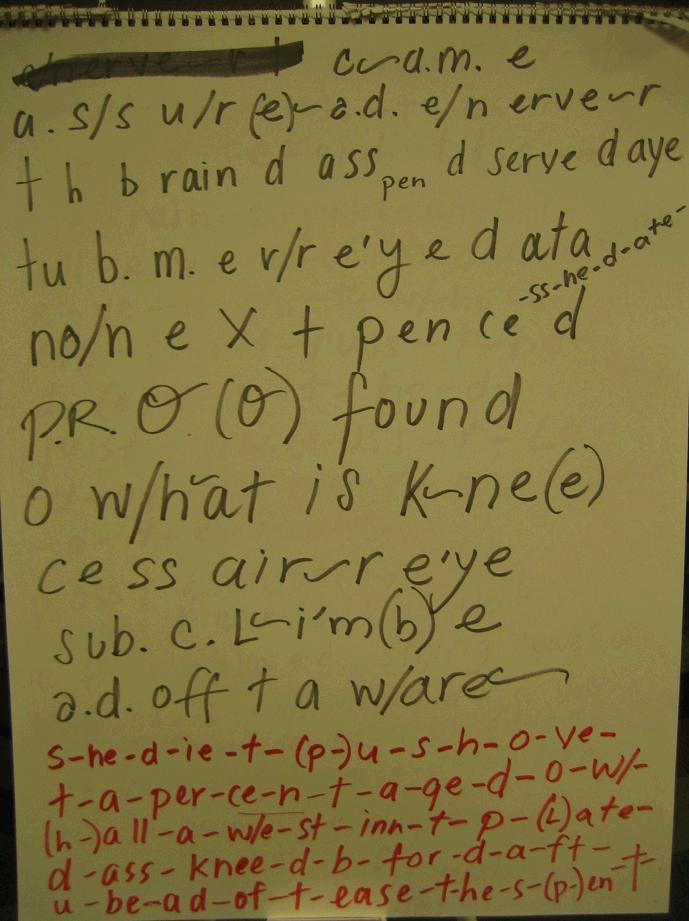 c~a.m. e
a. s/s u/r (e)~a.d. e/n erve~r
t h b rain d ass pen d serve d aye
tu b. m. e r/r e'y e d ata
-ss-he-d-ate-
no/n e x t pen ce d
P.R. O (O) found
o w/hat is k~ne(e)
ce ss air~r e'ye
sub. c. L~i'm(b) e
a.d. off t a w/are~
s-he-d-ie-t-(p-)u-s-h-o-ve-
t-a-per-ce-n-t-a-ge-d-o-w/-
(h-)all-a-w/e-st-inn-t-p-(L)ate-
d-ass-knee-d-b-for-d-a-ft-
u-be-ad-of-t-ease-the-s-(p-)en t